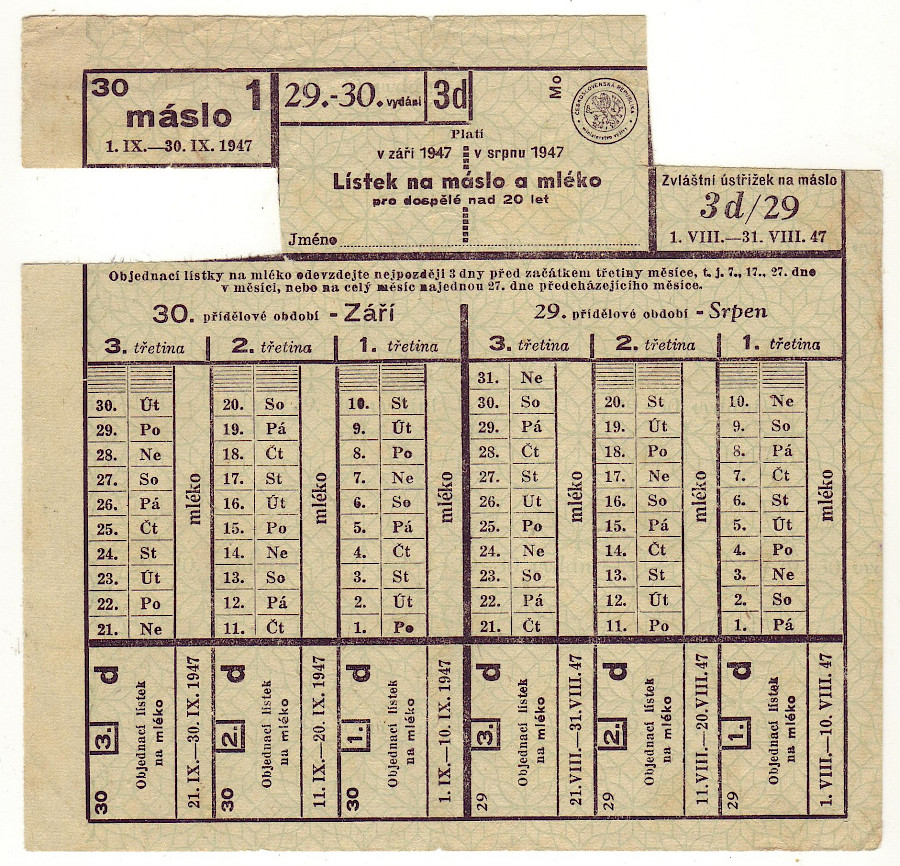 30 1
máslo
1. IX.—30. IX. 1947
29.-30. vydání 3d
Mo
ČESKOSLOVENSKÁ REPUBLIKA
ministerstvo výživy
Platí
v září 1947 v srpnu 1947
Lístek na máslo a mléko
pro dospělé nad 20 let
Jméno
Zvláštní ústřižek na máslo
3d/29
1. VIII.—31. VIII. 47
Objednací lístky na mléko odevzdejte nejpozději 3 dny před začátkem třetiny měsíce, t. j. 7., 17., 27. dne
v měsíci, nebo na celý měsíc najednou 27. dne předcházejícího měsíce.
30. přídělové období - Září 29. přídělové období - Srpen
3. třetina 2. třetina 1. třetina 3. třetina 2. třetina 1. třetina
31. Ne
30. Út 20. So 10. St 30. So 20. St 10. Ne
29. Po 19. Pá 9. Út 29. Pá 19. Út 9. So
28. Ne 18. Čt 8. Po 28. Čt 18. Po 8. Pá
27. So 17. St 7. Ne 27. St 17. Ne 7. Čt
26. Pá 16. Út 6. So 26. Ut 16. So 6. St
25. Čt 15. Po 5. Pá 25. Po 15. Pá 5. Út
24. St 14. Ne 4. Čt 24. Ne 14. Čt 4. Po
23. Út 13. So 3. St 23. So 13. St 3. Ne
22. Po 12. Pá 2. Út 22. Pá 12. Út 2. So
21. Ne 11. Čt 1. Po 21. Čt 11. Po 1. Pá
mléko mléko mléko mléko mléko mléko
30 3. d
Objednací lístek
na mléko
21. IX.—30. IX. 1947
30 2. d
Objednací lístek
na mléko
11. IX.—20. IX. 1947
30 1. d
Objednací lístek
na mléko
1. IX.—10. IX. 1947
29 3. d
Objednací lístek
na mléko
21. VIII.—31. VIII. 47
29 2. d
Objednací lístek
na mléko
11. VIII.—20. VIII. 47
29 1. d
Objednací lístek
na mléko
1. VIII.—10. VIII. 47